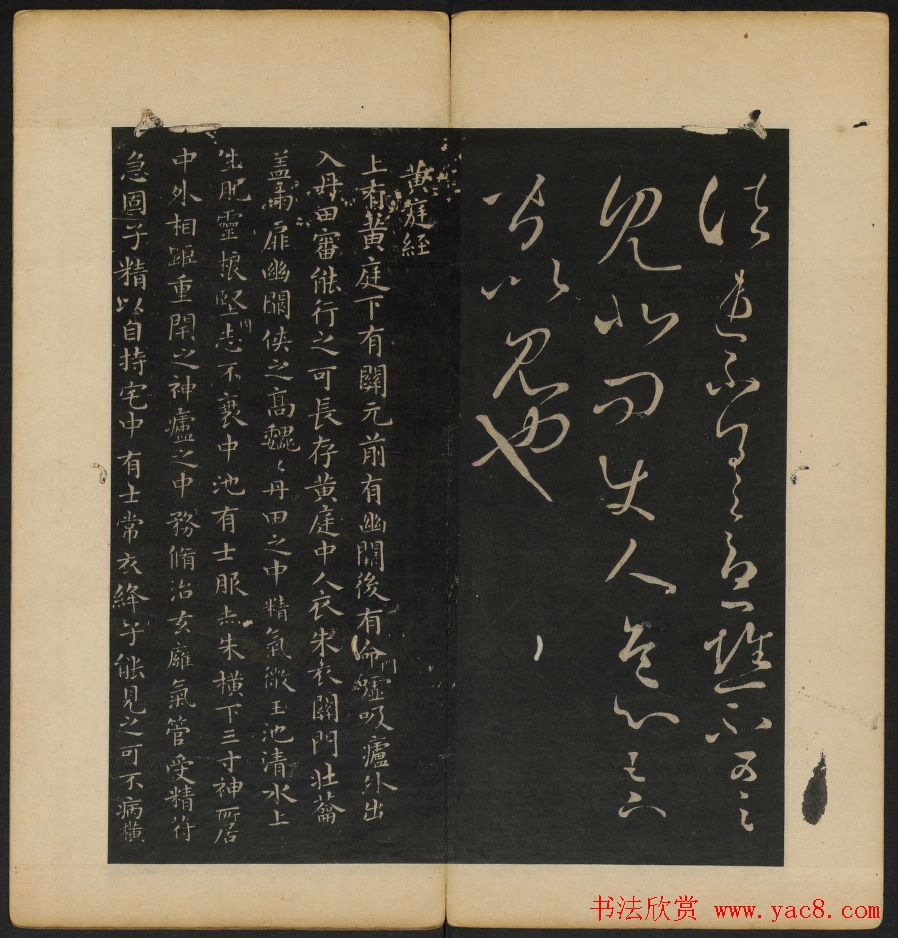 人
以也
黄庭経
上有黄庭下有關元前有幽闕後有命門噓吸廬外出
入丹田審能行之可長存黄庭中人衣朱衣關門壯蘥
盖兩扉幽闕俠之高巍〻丹田之中精氣微玉池清水上
生肥靈根堅志不衰中池有士服赤朱横下三寸神所居
中外相距重閉之神廬之中務脩治玄廱氣管受精符
急固子精以自持宅中有士常衣絳子能見之可不病横
书法欣赏 www.yac8.com